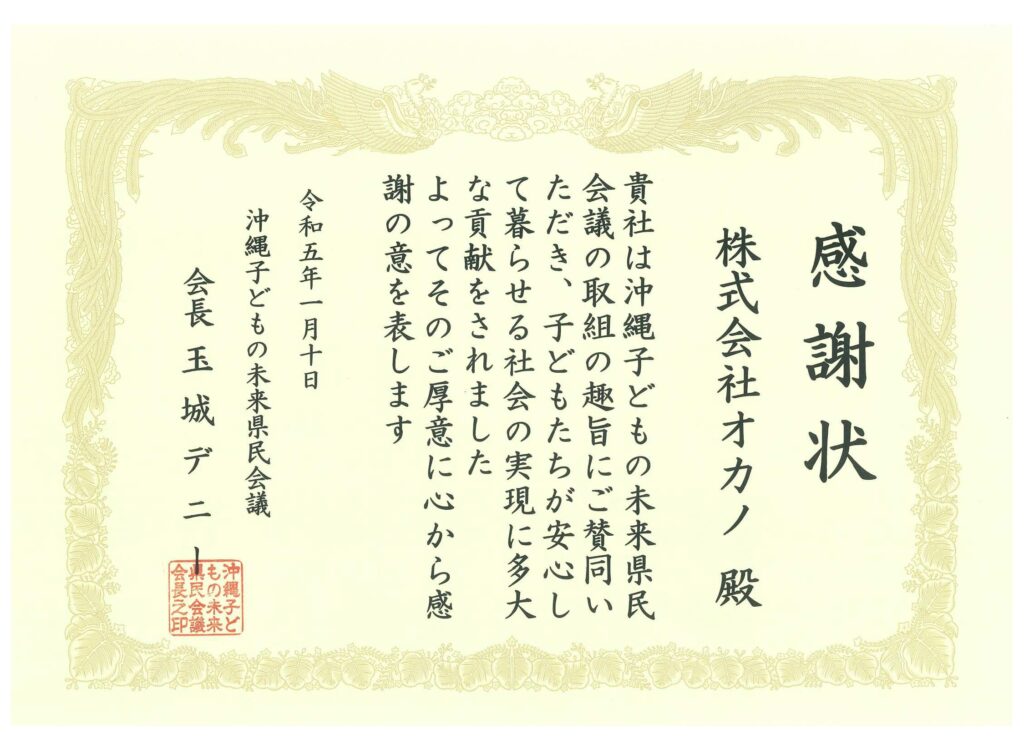 感謝状
株式会社オカノ 殿
貴社は沖縄子どもの未来県民
会議の取組の趣旨にご賛同い
ただき、子どもたちが安心し
て暮らせる社会の実現に多大
な貢献をされました
よってそのご厚意に心から感
謝の意を表します
令和五年一月十日
沖縄子どもの未来県民会議
会長 玉城デニー
沖縄子ど
もの未来
県民会議
会長之印